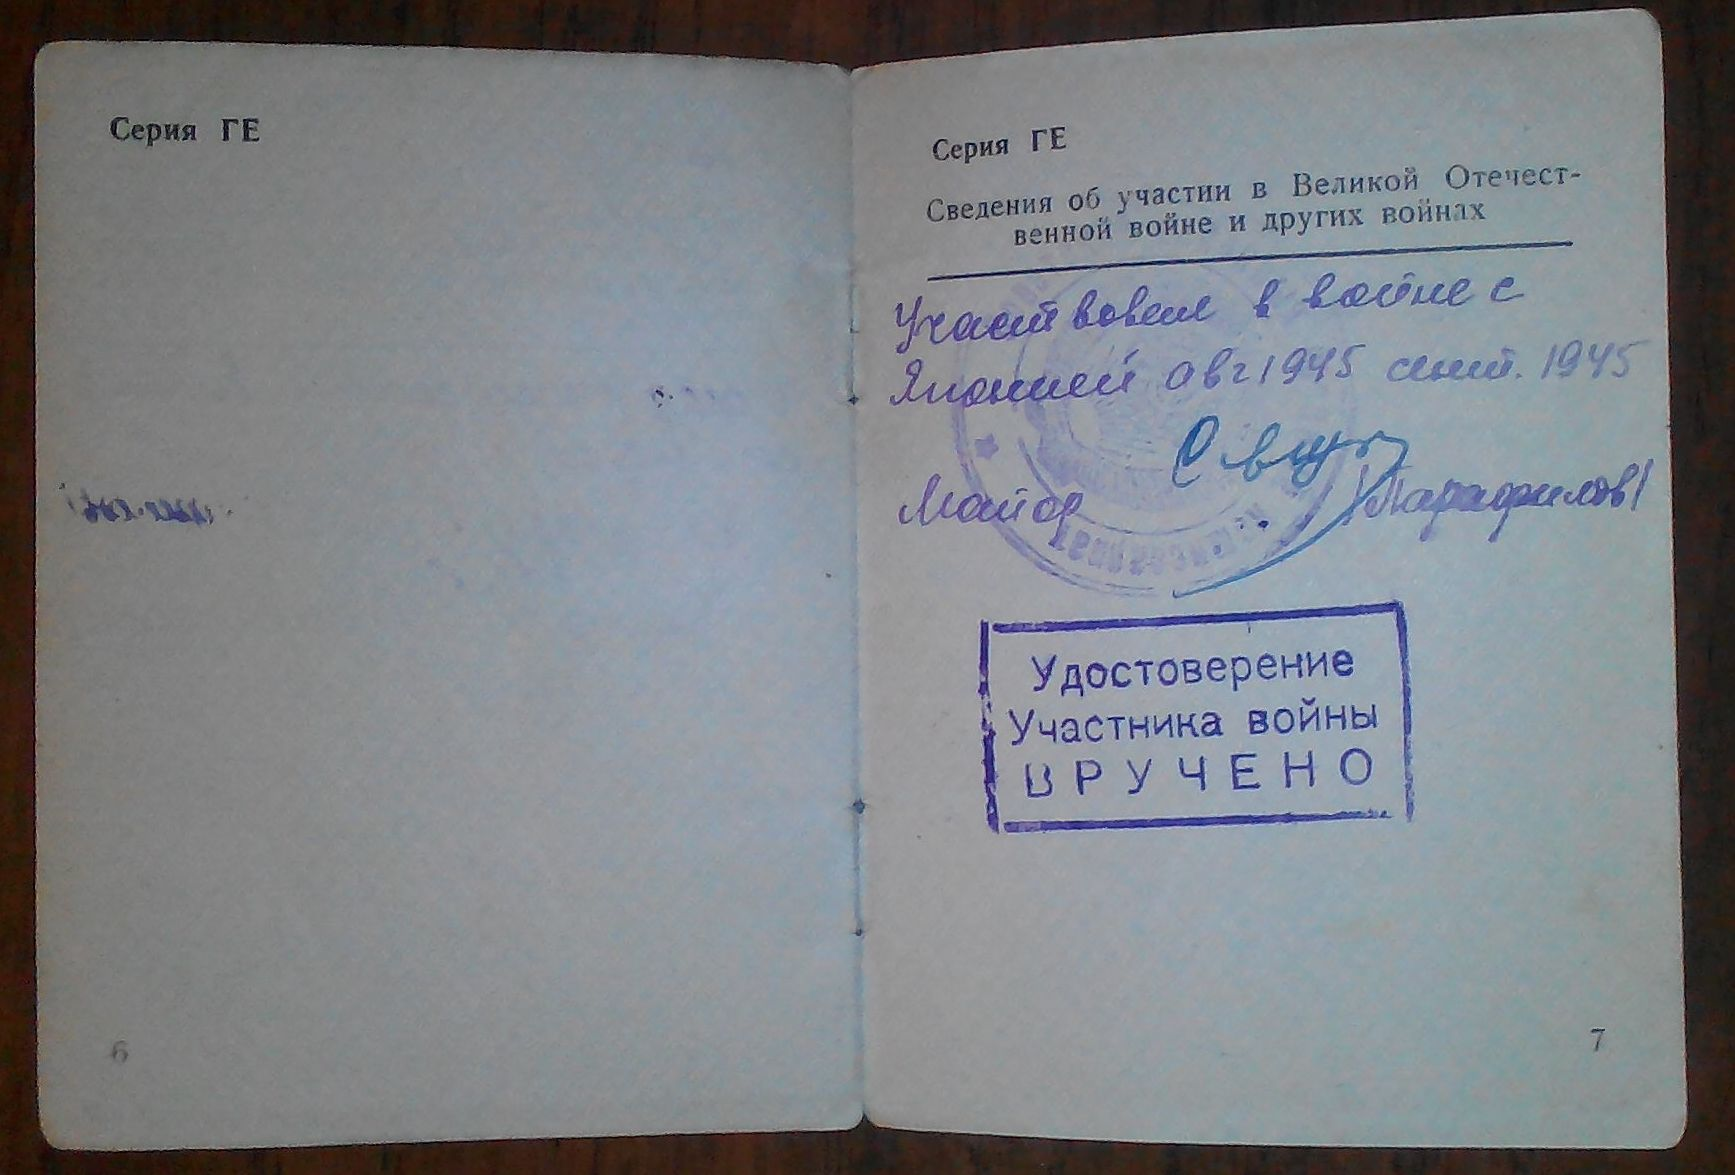 Серия ГЕ
6
Серия ГЕ
Сведения об участии в Великой Отечест-
венной войне и других войнах
Участвовал в войне с
Японией авг 1945 сент. 1945
Майор
Удостоверение
Участника войны
ВРУЧЕНО
7